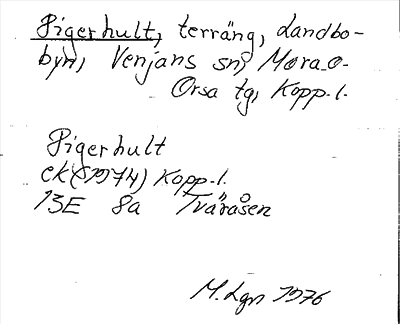 Pigerhult, terräng, Landbo-
byn, Venjans sn, Mora o.
Orsa tg, Kopp. l.
Pigerhult
ek (S1974) Kopp. l.
13E 8a Tväråsen
M. Lgn 1976